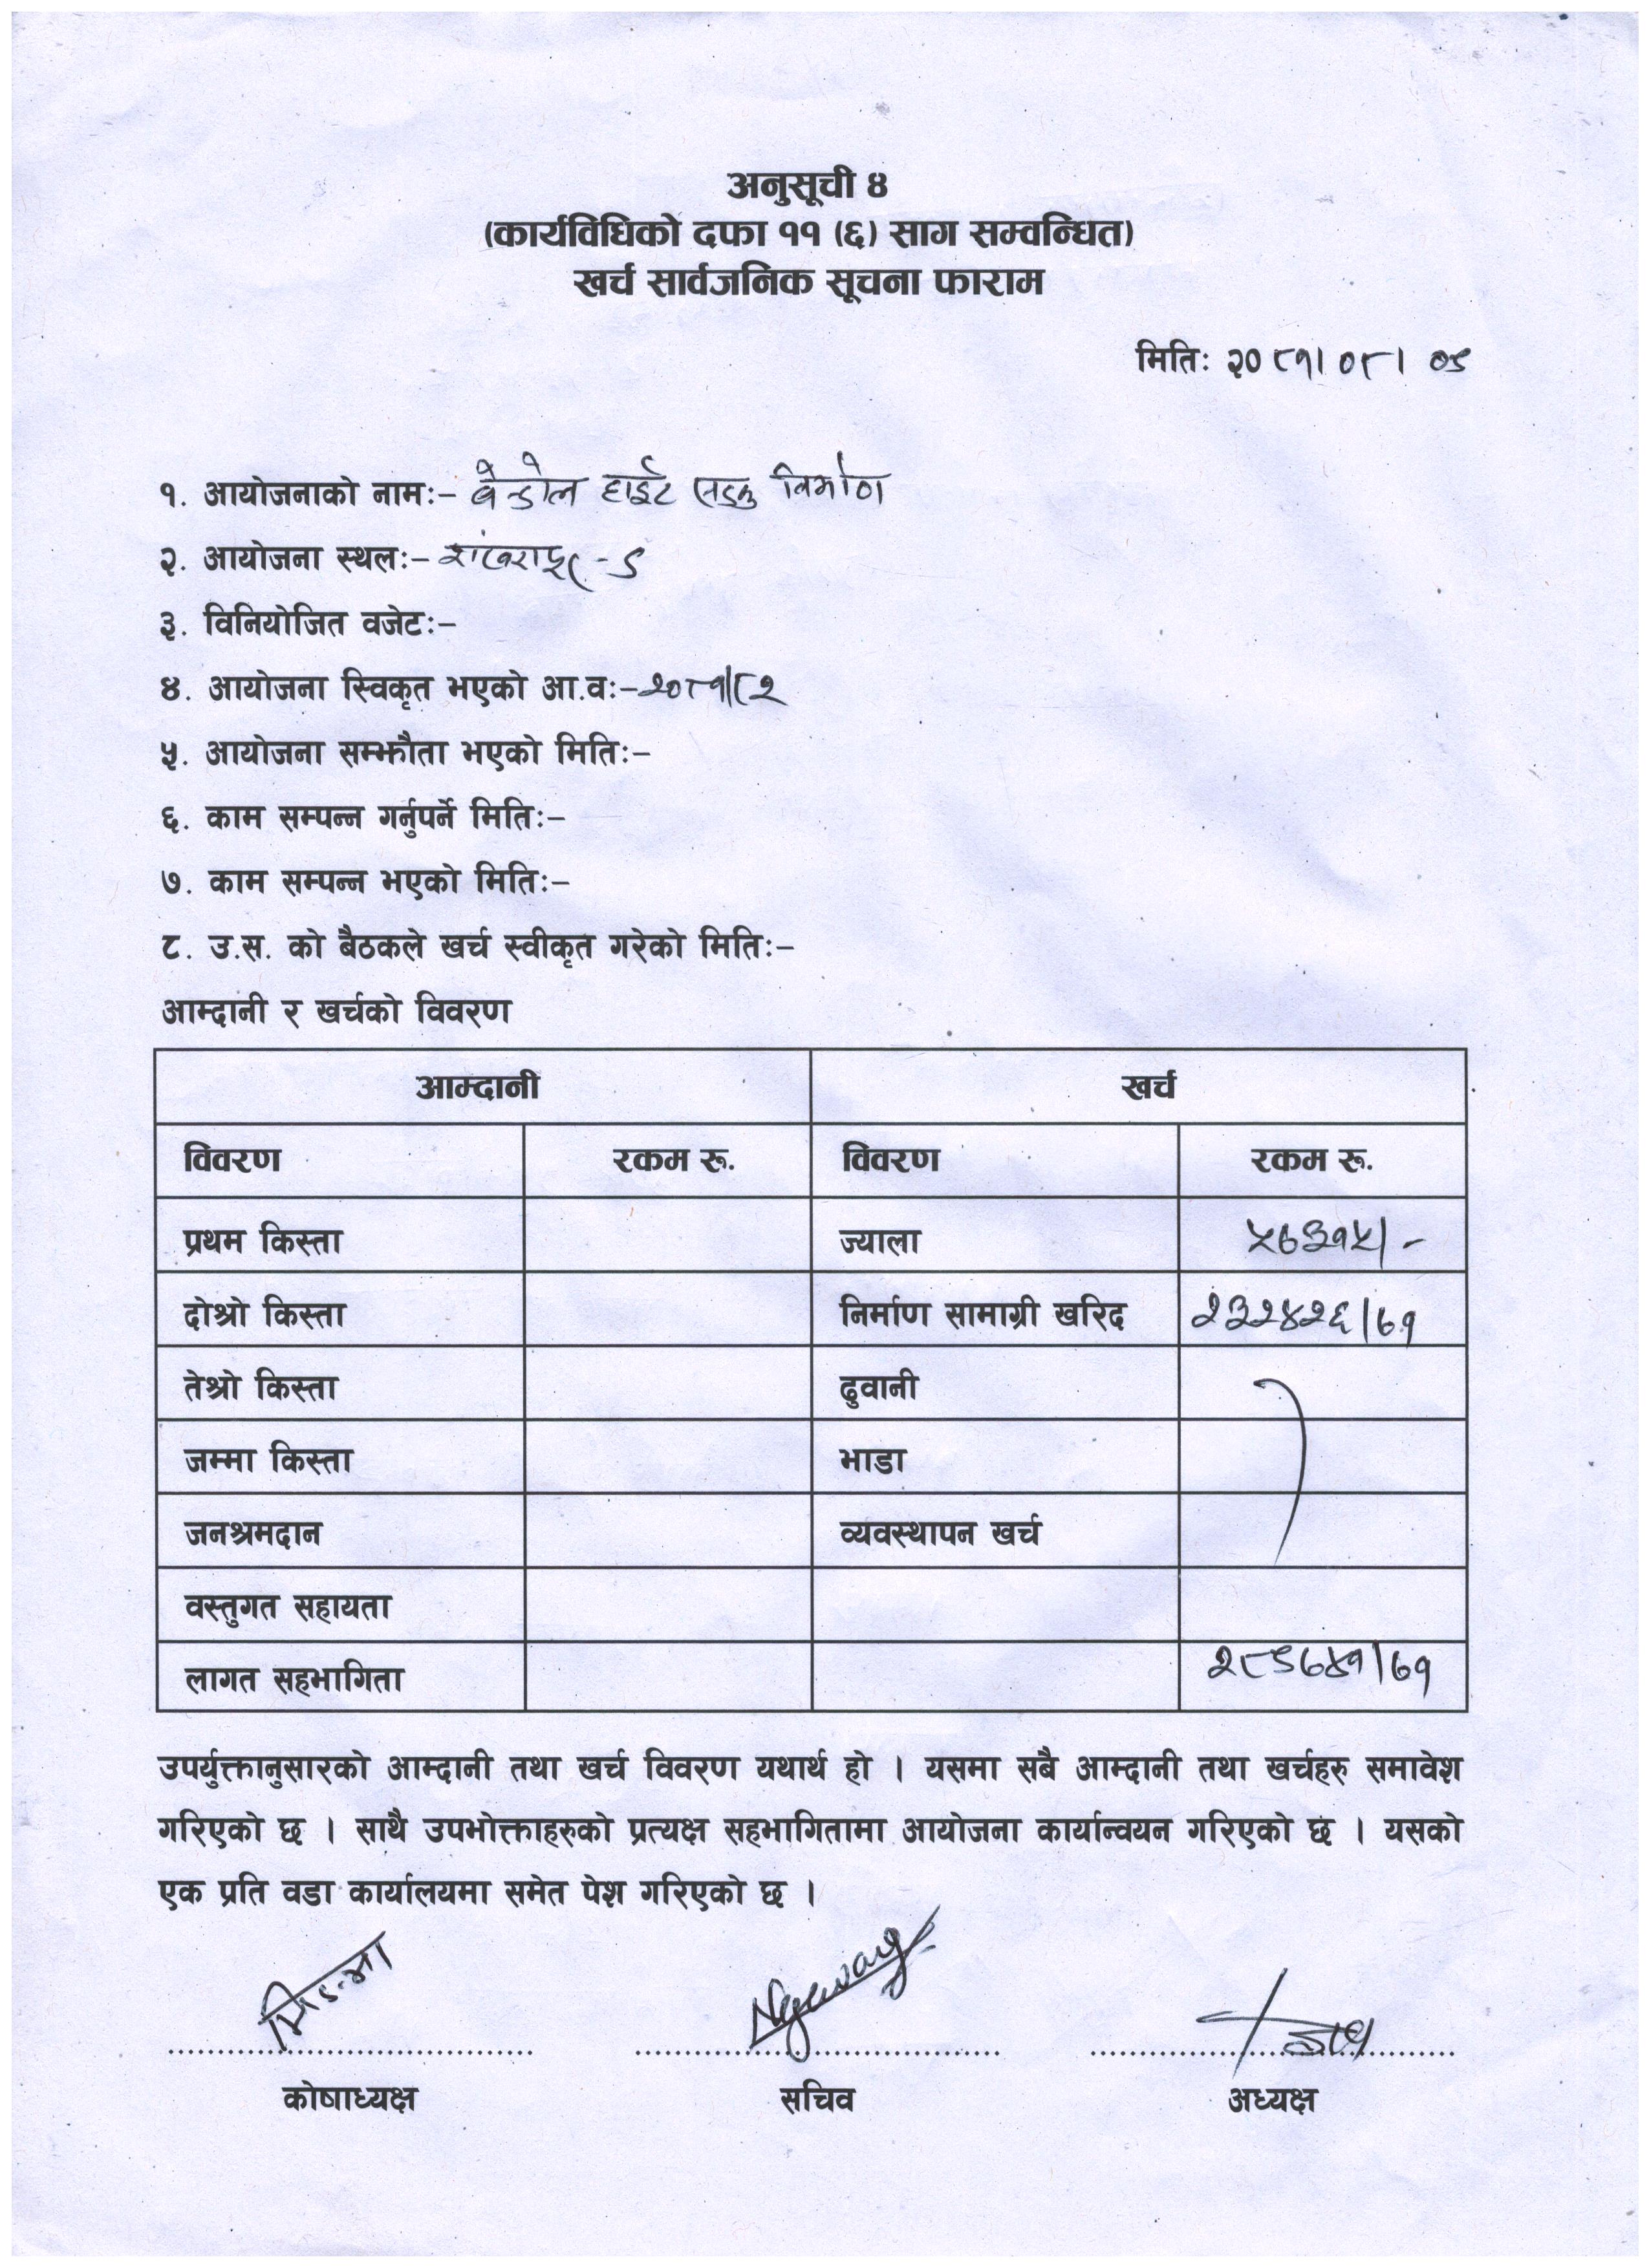 अनुसूची ४
(कार्यविधिको दफा ११ (६) साग सम्वन्धित)
खर्च सार्वजनिक सूचना फाराम
मितिः २०८१।०८। ०९
१. आयोजनाको नामः- वेन्डोल हाईट सडक निर्माण
२. आयोजना स्थलः- शंखरापुर -९
३. विनियोजित वजेटः-
४. आयोजना स्विकृत भएको आ.वः- २०८१/८२
५. आयोजना सम्झौता भएको मितिः-
६. काम सम्पन्न गर्नुपर्ने मितिः-
७. काम सम्पन्न भएको मितिः-
८. उ.स. को बैठकले खर्च स्वीकृत गरेको मितिः-
आम्दानी र खर्चको विवरण
आम्दानी खर्च
विवरण रकम रू. विवरण रकम रू.
प्रथम किस्ता ज्याला ५७३१५/-
दोश्रो किस्ता निर्माण सामाग्री खरिद २३२४२६/७१
तेश्रो किस्ता ढुवानी
जम्मा किस्ता भाडा
जनश्रमदान व्यवस्थापन खर्च
वस्तुगत सहायता
लागत सहभागिता २८९७४१/७१
उपर्युक्तानुसारको आम्दानी तथा खर्च विवरण यथार्थ हो । यसमा सबै आम्दानी तथा खर्चहरु समावेश
गरिएको छ । साथै उपभोक्ताहरुको प्रत्यक्ष सहभागितामा आयोजना कार्यान्वयन गरिएको छ । यसको
एक प्रति वडा कार्यालयमा समेत पेश गरिएको छ ।
कोषाध्यक्ष सचिव अध्यक्ष